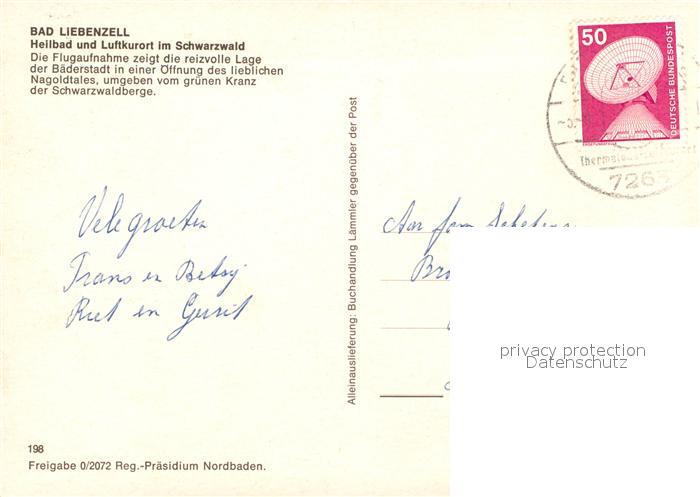 BAD LIEBENZELL
Heilbad und Luftkurort im Schwarzwald
Die Flugaufnahme zeigt die reizvolle Lage
der Bäderstadt in einer Öffnung des lieblichen
Nagoldtales, umgeben vom grünen Kranz
der Schwarzwaldberge.
50
DEUTSCHE BUNDESPOST
7263
Alleinauslieferung: Buchhandlung Lämmler gegenüber der Post
Vele groeten
Frans en Betsy
Riet en Gerrit
Aan fam
privacy protection
Datenschutz
198
Freigabe 0/2072 Reg.-Präsidium Nordbaden.